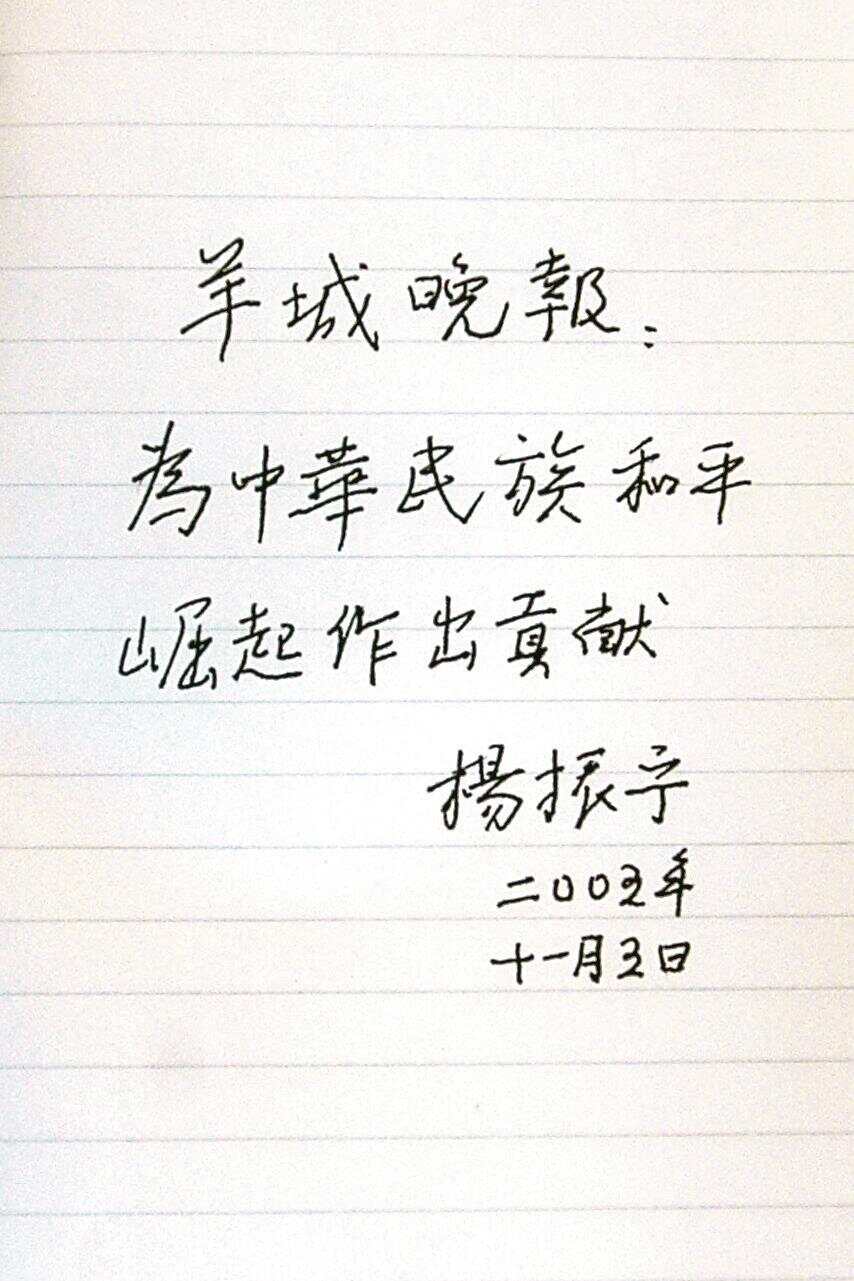 羊城晚報：
為中華民族和平
崛起作出貢献
楊振宁
二００五年
十一月五日